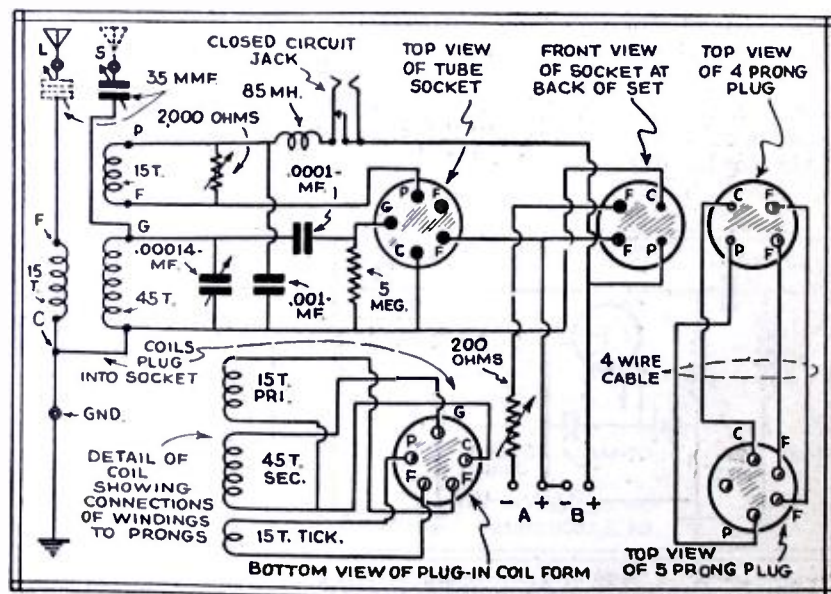 L
S
35 MMF.
CLOSED CIRCUIT
JACK
85 MH.
2,000 OHMS
P
15 T.
F
TOP VIEW
OF TUBE
SOCKET
FRONT VIEW
OF SOCKET AT
BACK OF SET
TOP VIEW
OF 4 PRONG
PLUG
.0001-
MF.
P F
G
C F
F C
F P
C F
P F
F
15
T.
C
G
45 T.
.00014-
MF.
.001-
MF.
5
MEG.
COILS
PLUG
INTO SOCKET
GND.
200
OHMS
4 WIRE
CABLE
15 T.
PRI.
45 T.
SEC.
15 T. TICK.
G
P C
F F
DETAIL OF
COIL
SHOWING
CONNECTIONS
OF WINDINGS
TO PRONGS
- A + - B +
C F
P F
BOTTOM VIEW OF PLUG-IN COIL FORM
TOP VIEW
OF 5 PRONG PLUG